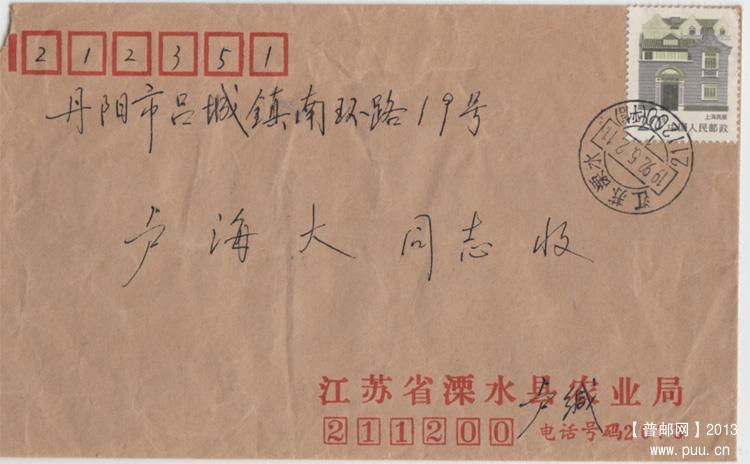 212351
丹阳市吕城镇南环路19号
卢海大同志收
上海民居
中国人民邮政
江苏溧水
1992.5.2.11
211200
江苏省溧水县农业局
卢缄
211200 电话号码2
【普邮网】2013
www.puu.cn